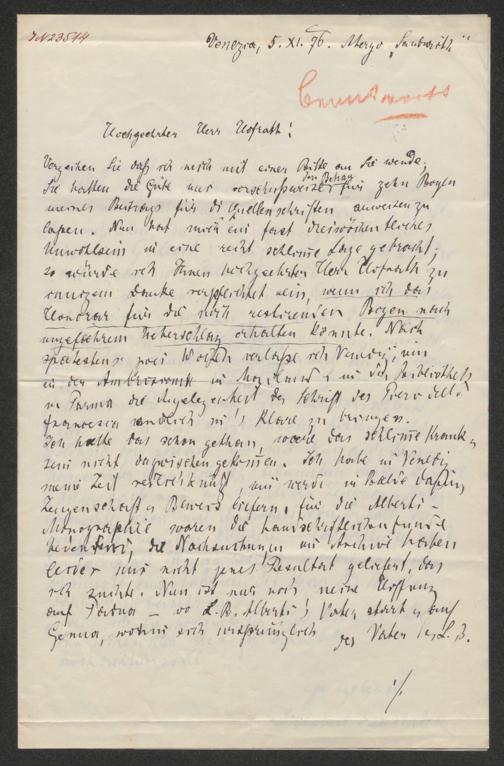 IN 23514
Venezia, 5. XI. 76. Albergo „Sandwirth"
Hochgeehrter Herr Hofrath!
Verzeihen Sie daß ich mich mit einer Bitte an Sie wende.
Sie hatten die Güte mir vorschußweise den Betrag für zehn Bogen
meines Beitrags für die Quellenschriften anweisen zu
laßen. Nun hat mich ein fast dreiwöchentliches
Unwohlsein in eine recht schlimme Lage gebracht;
so würde ich Ihnen hochgeehrter Herr Hofrath zu
innigem Danke verpflichtet sein, wenn ich das
Honorar für die noch restirenden Bogen nach
ungefährem Ueberschlag erhalten könnte. Nach
spätestens zwei Wochen verlaße ich Venedig, um
in der Ambrosiana in Mailand u in der Bibliothek
in Parma die Angelegenheit der Schrift des Piero della
Francesca endlich in's Klare zu bringen.
Ich hätte das schon gethan, wäre das schlimme Krank
sein nicht dazwischen gekommen. Ich habe in Venedig
meine Zeit und werde in Bälde dafür
Zeugenschaft u Beweis liefern; für die Alberti-
Monographie waren die handschriftlichen Funde
bedeutend, die Nachsuchungen im Archive haben
leider mir nicht jenes Resultat geliefert, das
ich suchte. Nun ist nur noch meine Hoffnung
auf Padua – wo L. B. Alberti's Vater starb u auf
Genua, wohin sich ursprünglich der Vater des L. B.
./.